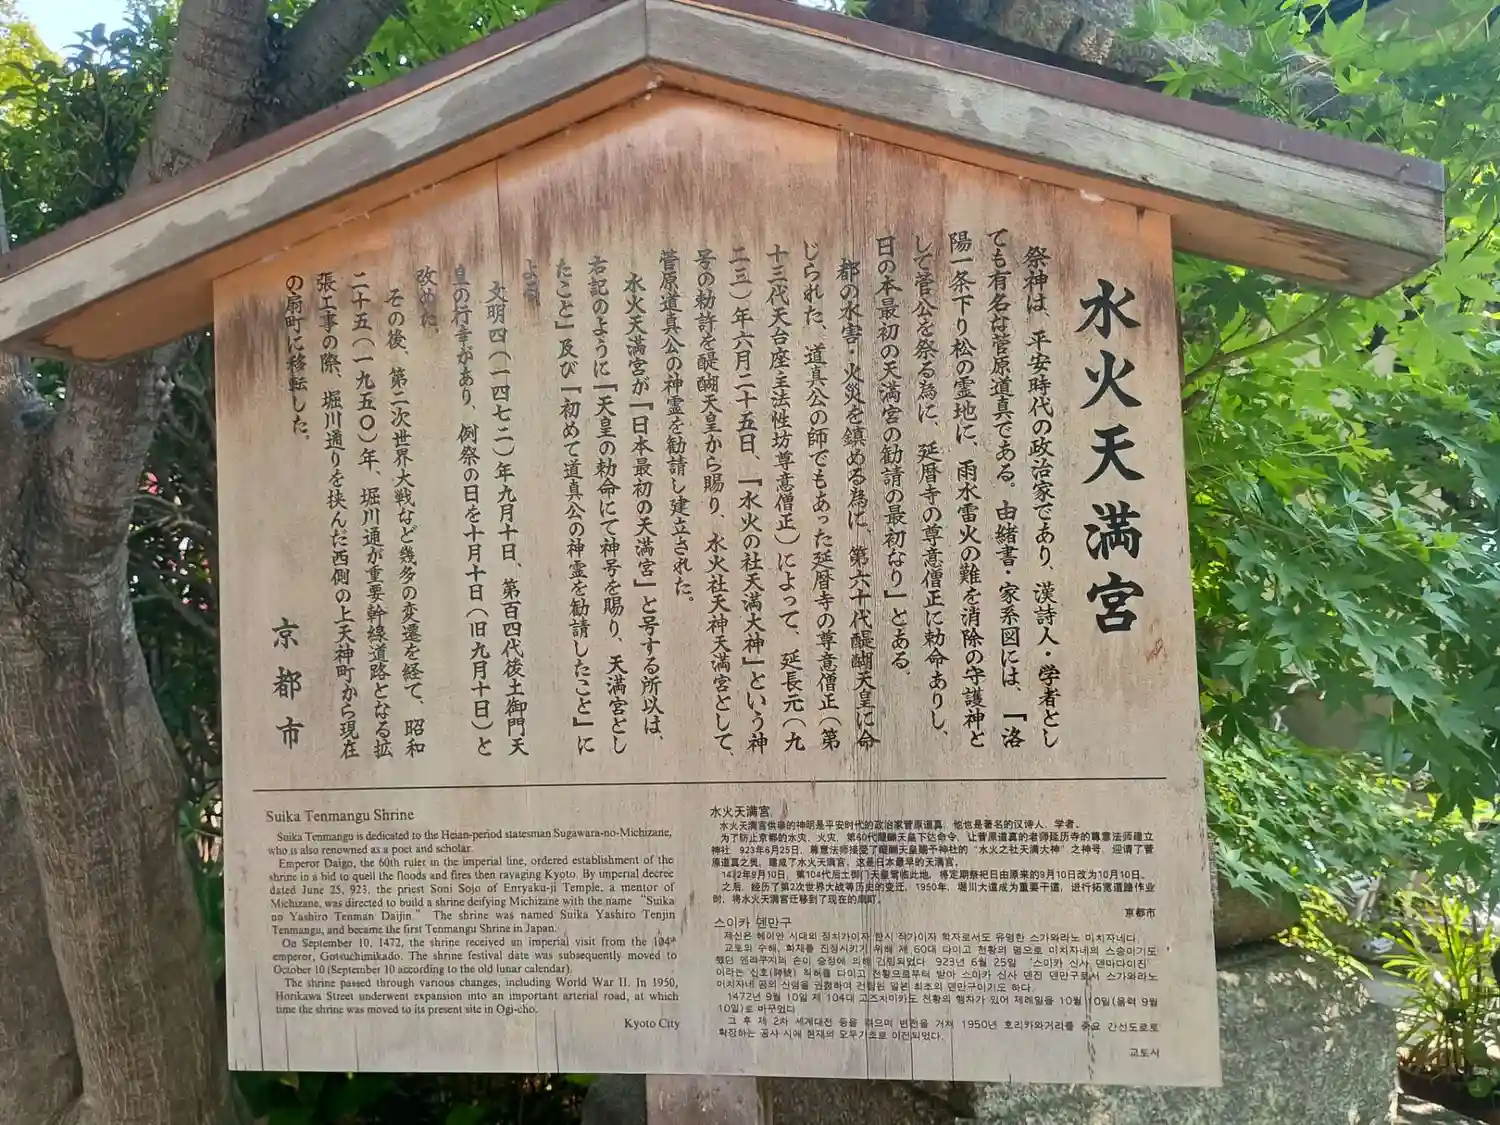 水火天満宮
祭神は、平安時代の政治家であり、漢詩人・学者とし
ても有名な菅原道真である。由緒書・家系図には、「洛
陽一条下り松の霊地に、雨水雷火の難を消除の守護神と
して菅公を祭る為に、延暦寺の尊意僧正に勅命ありし、
日の本最初の天満宮の勧請の最初なり」とある。
都の水害・火災を鎮める為に、第六十代醍醐天皇に命
じられた、道真公の師でもあった延暦寺の尊意僧正(第
十三代天台座主法性坊尊意僧正)によって、延長元(九
二三)年六月二十五日、「水火の社天満大神」という神
号の勅許を醍醐天皇から賜り、水火社天神天満宮として、
菅原道真公の神霊を勧請し建立された。
水火天満宮が「日本最初の天満宮」と号する所以は、
右記のように「天皇の勅命にて神号を賜り、天満宮とし
たこと」及び「初めて道真公の神霊を勧請したこと」に
よる。
文明四(一四七二)年九月十日、第百四代後土御門天
皇の行幸があり、例祭の日を十月十日(旧九月十日)と
改めた。
その後、第二次世界大戦など幾多の変遷を経て、昭和
二十五(一九五〇)年、堀川通が重要幹線道路となる拡
張工事の際、堀川通りを挟んだ西側の上天神町から現在
の扇町に移転した。
京都市
Suika Tenmangu Shrine
Suika Tenmangu is dedicated to the Heian-period statesman Sugawara-no-Michizane,
who is also renowned as a poet and scholar.
Emperor Daigo, the 60th ruler in the imperial line, ordered establishment of the
shrine in a bid to quell the floods and fires then ravaging Kyoto. By imperial decree
dated June 25, 923, the priest Soni Sojo of Enryaku-ji Temple, a mentor of
Michizane, was directed to build a shrine deifying Michizane with the name “Suika
no Yashiro Tenman Daijin.” The shrine was named Suika Yashiro Tenjin
Tenmangu, and became the first Tenmangu Shrine in Japan.
On September 10, 1472, the shrine received an imperial visit from the 104th
emperor, Gotsuchimikado. The shrine festival date was subsequently moved to
October 10 (September 10 according to the old lunar calendar).
The shrine passed through various changes, including World War II. In 1950,
Horikawa Street underwent expansion into an important arterial road, at which
time the shrine was moved to its present site in Ogi-cho.
Kyoto City
水火天满宫
水火天满宫供奉的神明是平安时代的政治家菅原道真，他也是著名的汉诗人、学者。
为了防止京都的水灾、火灾，第60代醍醐天皇下达命令，让菅原道真的老师延历寺的尊意法师建立
神社。923年6月25日，尊意法师接受了醍醐天皇赐予神社的“水火之社天满大神”之神号，迎请了菅
原道真之灵，建成了水火天满宫，这是日本最早的天满宫。
1472年9月10日，第104代后土御门天皇驾临此地，将定期祭祀日由原来的9月10日改为10月10日。
之后，经历了第2次世界大战等历史的变迁，1950年，堀川大道成为重要干道，进行拓宽道路作业
时，将水火天满宫迁移到了现在的扇町。
京都市
스이카 덴만구
제신은 헤이안 시대의 정치가이자 한시 작가이자 학자로서도 유명한 스가와라노 미치자네다.
교토의 수해, 화재를 진정시키기 위해 제 60대 다이고 천황의 명으로 미치자네의 스승이기도
했던 엔랴쿠지의 손이 승정에 의해 건립되었다. 923년 6월 25일 “스이카 신사 덴마다이진”
이라는 신호(神號) 허락을 다이고 천황으로부터 받아 스이카 신사 덴진 덴만구로서 스가와라노
미치자네 공의 신령을 권청하여 건립된 일본 최초의 덴만구이기도 하다.
1472년 9월 10일 제 104대 고츠치미카도 천황의 행차가 있어 제례일을 10월 10일(음력 9월
10일)로 바꾸었다.
그 후 제 2차 세계대전 등을 겪으며 변천을 거쳐 1950년 호리카와거리를 주요 간선도로로
확장하는 공사 시에 현재의 오우기초로 이전되었다.
교토시